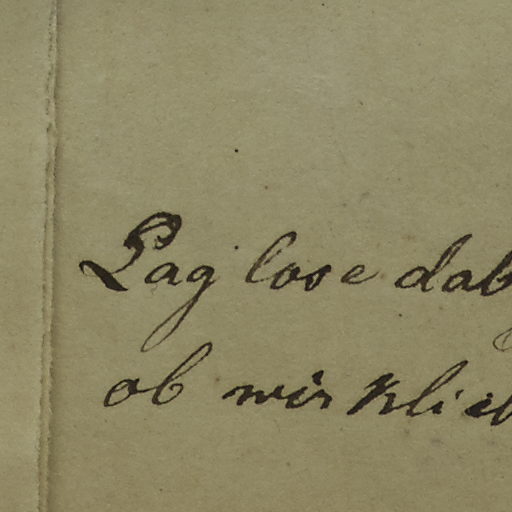 Lag lose dab
ob wirklich